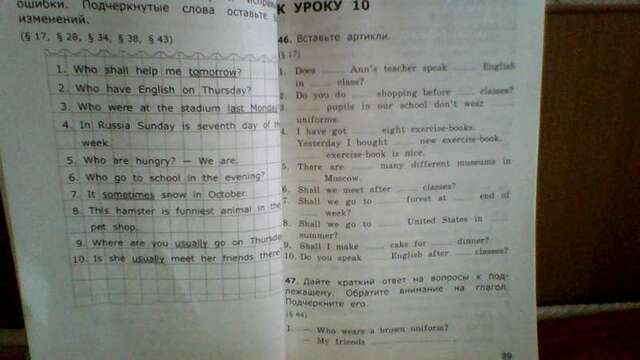 ошибки. Подчеркнутые слова оставьте
изменений.
(§ 17, § 28, § 34, § 38, § 43)
1. Who shall help me tomorrow?
2. Who have English on Thursday?
3. Who were at the stadium last Monday
4. In Russia Sunday is seventh day of the
week.
5. Who are hungry? — We are.
6. Who go to school in the evening?
7. It sometimes snow in October.
8. This hamster is funniest animal in the
pet shop.
9. Where are you usually go on Thursda
10. Is she usually meet her friends there
К УРОКУ 10
46. Вставьте артикли.
(§ 17)
1. Does ___ Ann's teacher speak ___ English
in ___ class?
2. Do you do ___ shopping before ___ classes?
3. ___ pupils in our school don't wear
uniforms.
4. I have got ___ eight exercise-books.
Yesterday I bought ___ new exercise-book.
___ exercise-book is nice.
5. There are ___ many different museums in
___ Moscow.
6. Shall we meet after ___ classes?
7. Shall we go to ___ forest at ___ end of
___ week?
8. Shall we go to ___ United States in ___
summer?
9. Shall I make ___ cake for ___ dinner?
10. Do you speak ___ English after ___ classes?
47. Дайте краткий ответ на вопросы к под-
лежащему. Обратите внимание на глагол.
Подчеркните его.
(§ 44)
1. — Who wears a brown uniform?
— My friends ___
39